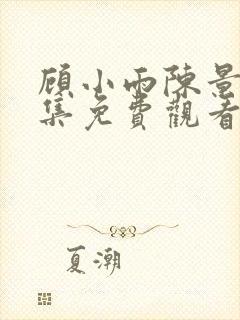 顾小雨陈景
集免費觀看
夏潮